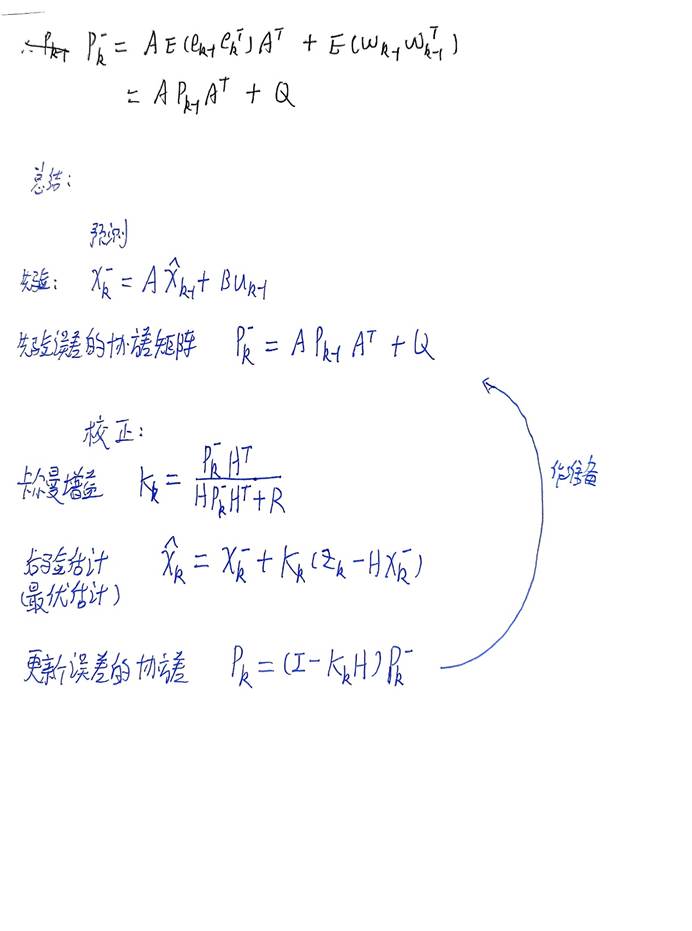 ∴ P_k^- = A E(e_{k-1} e_{k-1}^T) A^T + E(w_{k-1} w_{k-1}^T)
= A P_{k-1} A^T + Q
总结：
预测
先验： X_k^- = A X̂_{k-1} + B u_{k-1}
先验误差的协方差矩阵 P_k^- = A P_{k-1} A^T + Q
校正：
卡尔曼增益 K_k = \frac{P_k^- H^T}{H P_k^- H^T + R}
作准备
后验估计 X̂_k = X_k^- + K_k (Z_k - H X_k^-)
(最优估计)
更新误差的协方差 P_k = (I - K_k H) P_k^-